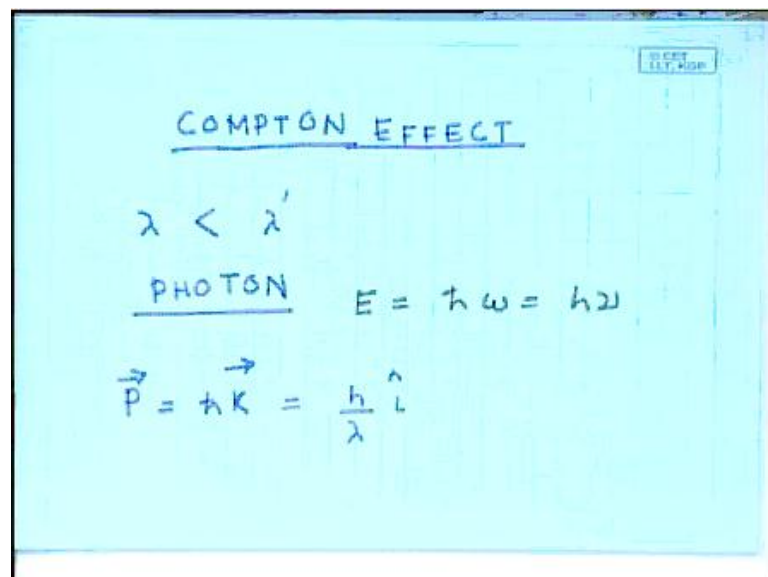 © CET
I.I.T. KGP
COMPTON EFFECT
λ < λ'
PHOTON E = ħω = hν
P⃗ = ħK⃗ = h/λ î